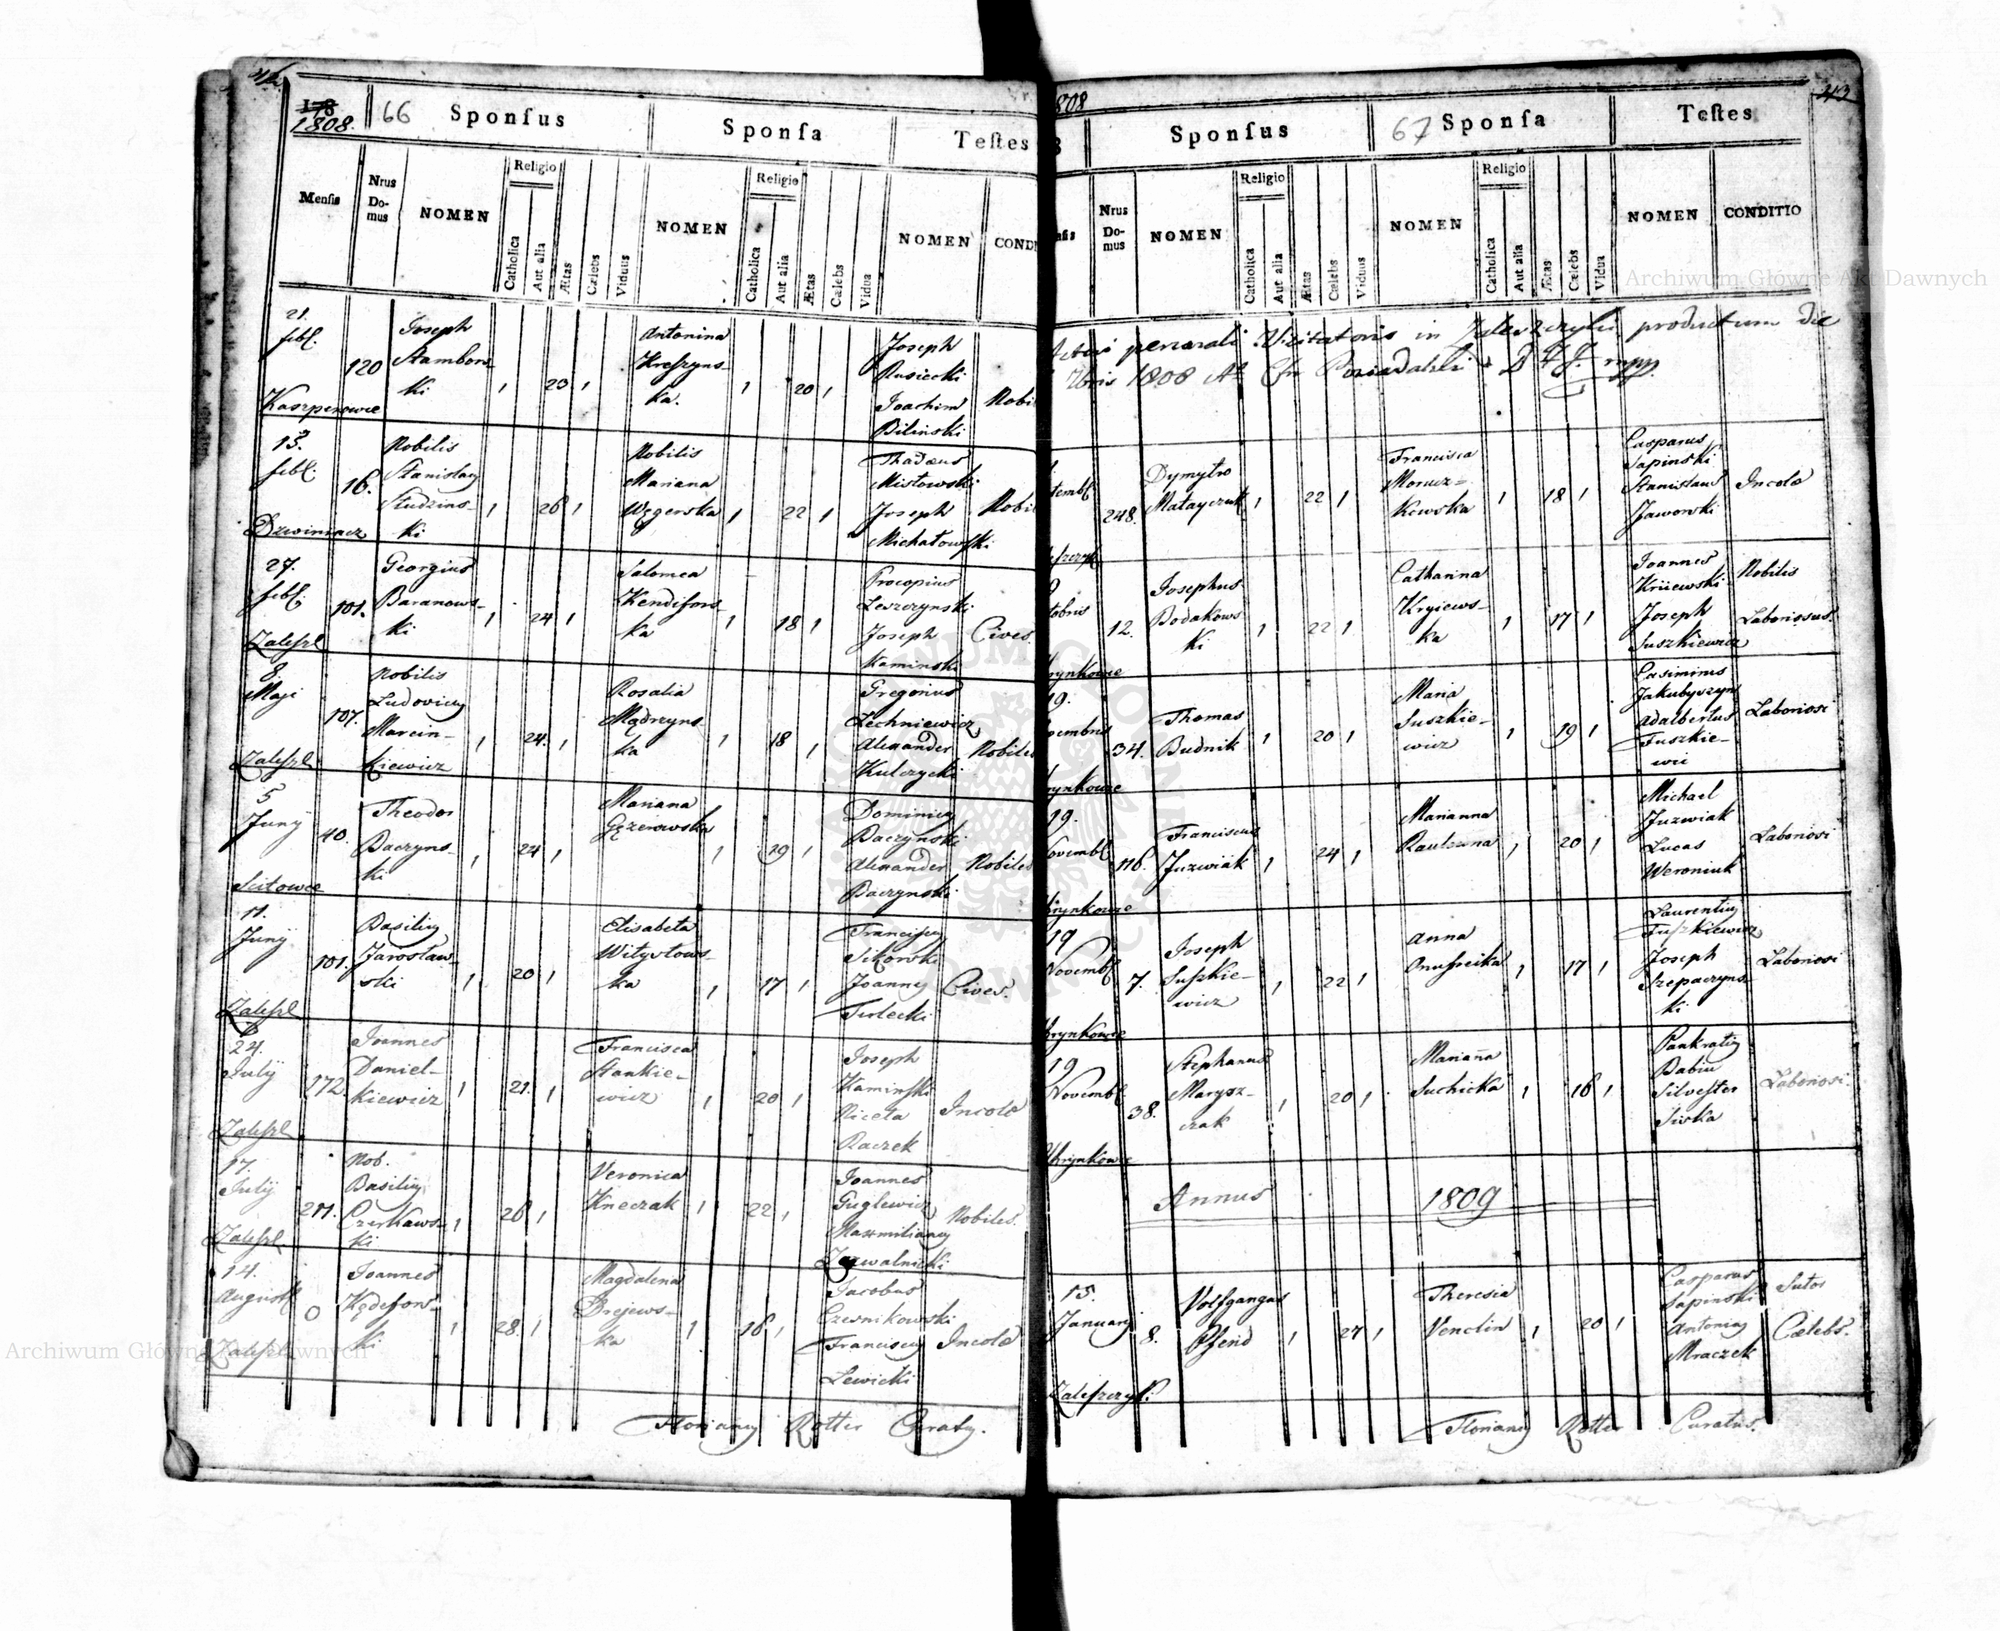 1808.
66
Sponsus
Sponsa
Testes
Mensis
Nrus Domus
NOMEN
Religio
Catholica
Aut alia
Ætas
Cælebs
Viduus
NOMEN
Religio
Catholica
Aut alia
Ætas
Cælebs
Vidua
NOMEN
21. febl. Kasperowce
120
Joseph Stambors-
ki
1
20
1
Antonina
ka.
1
20
1
Joseph
Rusiecki
Joachim
Biliński
13. febl.
16.
Nobilis
Stanislaus
Studzins-
ki
1
26
1
Nobilis
Mariana
Węgerska
1
22
1
Thadæus
Mistowski
Joseph
Michałowski
27. febl. Zaleszl
101.
Georgius
Baranows-
ki
1
24
1
Salomea
ka
1
18
1
Procopius
Leszczynski
Joseph
Kaminski
Cives
8. Maji Zaleszl
107.
Nobilis
Ludovicus
Marcin-
kiewicz
1
24.
1
Rosalia
Mądrzyns
ka
1
18
1
Gregorius
Lechniewicz
Alexander
Kulczycki
Nobiles
5 Junÿ
40.
Theodor
Baczyns-
ki
1
24
1
Mariana
1
19
1
Dominicus
Baczynski
Alexander
Baczynski
Nobiles
11. Junÿ Zaleszl
101.
Basilius
Jarosław-
ski
1
20
1
Elisabeta
Witystows-
ka
1
17
1
Franciscus
Sikorski
Joannes
Terlecki
Cives.
24. Julÿ Zaleszl
172
Joannes
Daniel-
kiewicz
1
21.
1
Francisca
Stankie-
wicz
1
20
1
Joseph
Kaminski
Niceta
Raczek
Incolæ
17. Julÿ Zaleszl
Nob.
Basilius
Czerkaws-
ki
1
26
1
Veronica
Kneczak
1
22
1
Joannes
Guglewicz
Maxmilianus
Nobiles.
14. Augustl
0
Joannes
ki
1
28.
1
Magdalena
ka
1
16
1
Jacobus
Czernikowski
Franciscus
Lewicki
Incolæ
Florianus Rotter Curatus.
808
43
Sponsus
67
Sponsa
Testes
Nrus Domus
NOMEN
Religio
Catholica
Aut alia
Ætas
Cælebs
Viduus
NOMEN
Religio
Catholica
Aut alia
Ætas
Cælebs
Vidua
NOMEN
CONDITIO
generali Visitatoris in productum die
1808
248.
Dymytro
Matayczuk
1
22
1
Francisca
Morucz=
kowska
1
18
1
Casparus
Sapinski
Stanislaus
Jaworski
Incolæ
12.
Josephus
Bodakows
ki
1
22
1
Catharina
Kryiews-
ka
1
17
1
Joannes
Kriiewski
Joseph
Suszkiewicz
Nobilis
Laboriosus.
19.
34.
Thomas
Budnik
1
20
1
Maria
Suszkie-
wicz
1
19
1
Casimirus
Adalbertus
Suszkie-
wic
Laboriosi
19. Novembl
116.
Franciscus
Juzwiak
1
24
1
Marianna
1
20
1
Michael
Juzwiak
Lucas
Weroniuk
Laboriosi
19 Novembl
7.
Joseph
Suszkie-
wicz
1
22
1
Anna
1
17
1
Laurentius
Suszkiewicz
Joseph
Szepaczyns-
ki
Laboriosi
19 Novembl
38.
Stephanus
Marysz-
czak
1
20
1
Mariana
Suchicka
1
16
1
Pankratius
Babiu
Silvester
Siwka
Laboriosi.
Annus 1809
15. January Zaleszczyki
8.
Volfgangus
Pfend
1
27
1
Theresia
Venclin
1
20
1
Casparus
Sapinski
Antonius
Mraczek
Sutor
Cælebs.
Florianus Rotter Curatus.
Archiwum Główne Akt Dawnych
Archiwum Główne Akt Dawnych